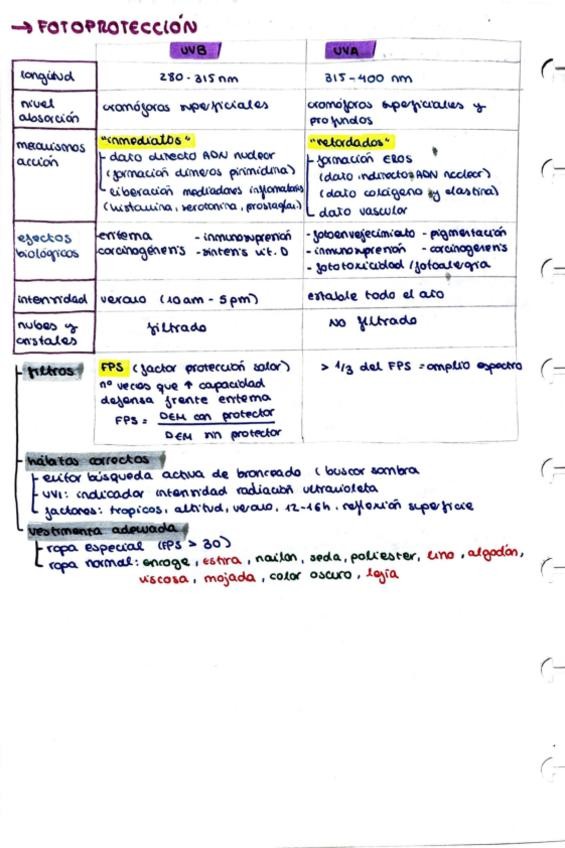 → FOTOPROTECCIÓN
UVB UVA
longitud 280-315nm 315-400 nm
nivel absorción cromóforos superficiales cromóforos superficiales y profundos
mecanismos acción
"inmediatos"
- daño directo ADN nuclear
(formación dímeros pirimidina)
- liberación mediadores inflamatorios
(histamina, serotonina, prostaglan.)
"retardados"
- formación EROS
(daño indirecto ADN nuclear)
(daño colágeno y elastina)
- daño vascular
efectos biológicos
eritema - inmunosupresión
carcinogénesis - síntesis vit. D
- fotoenvejecimiento - pigmentación
- inmunosupresión - carcinogénesis
- fototoxicidad / fotoalergia
intensidad verano (10am - 5pm) estable todo el año
nubes y cristales filtrado NO filtrado
filtros
FPS (factor protección solar)
nº veces que ↑ capacidad
defensa frente eritema
FPS = DEM con protector
DEM sin protector
> 1/3 del FPS = amplio espectro
hábitos correctos
- evitar búsqueda activa de bronceado (buscar sombra
- UVI: indicador intensidad radiación ultravioleta
- factores: tropicos, altitud, verano, 12-16h, reflexión superficie
vestimenta adecuada
- ropa especial (FPS > 30)
- ropa normal: encoge, estira, nailon, seda, poliester, lino, algodón,
viscosa, mojada, color oscuro, lejía